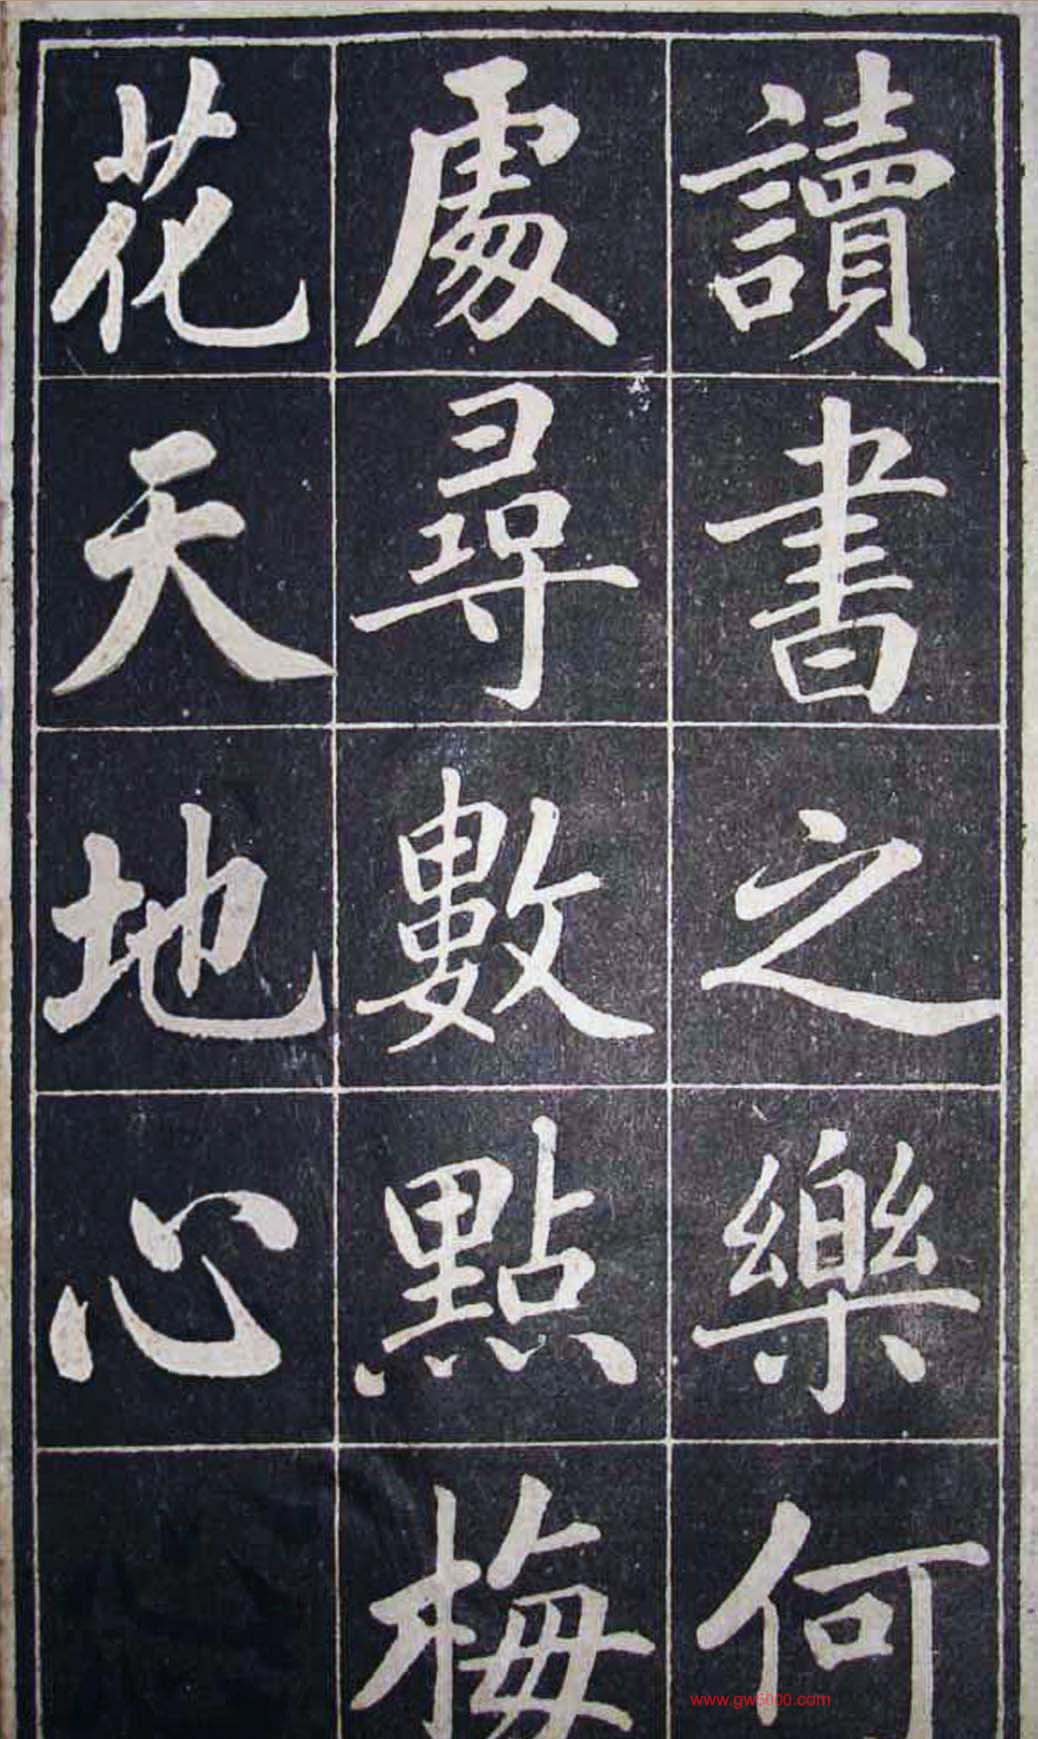 讀書之樂何
處尋數點梅
花天地心
www.gw5000.com